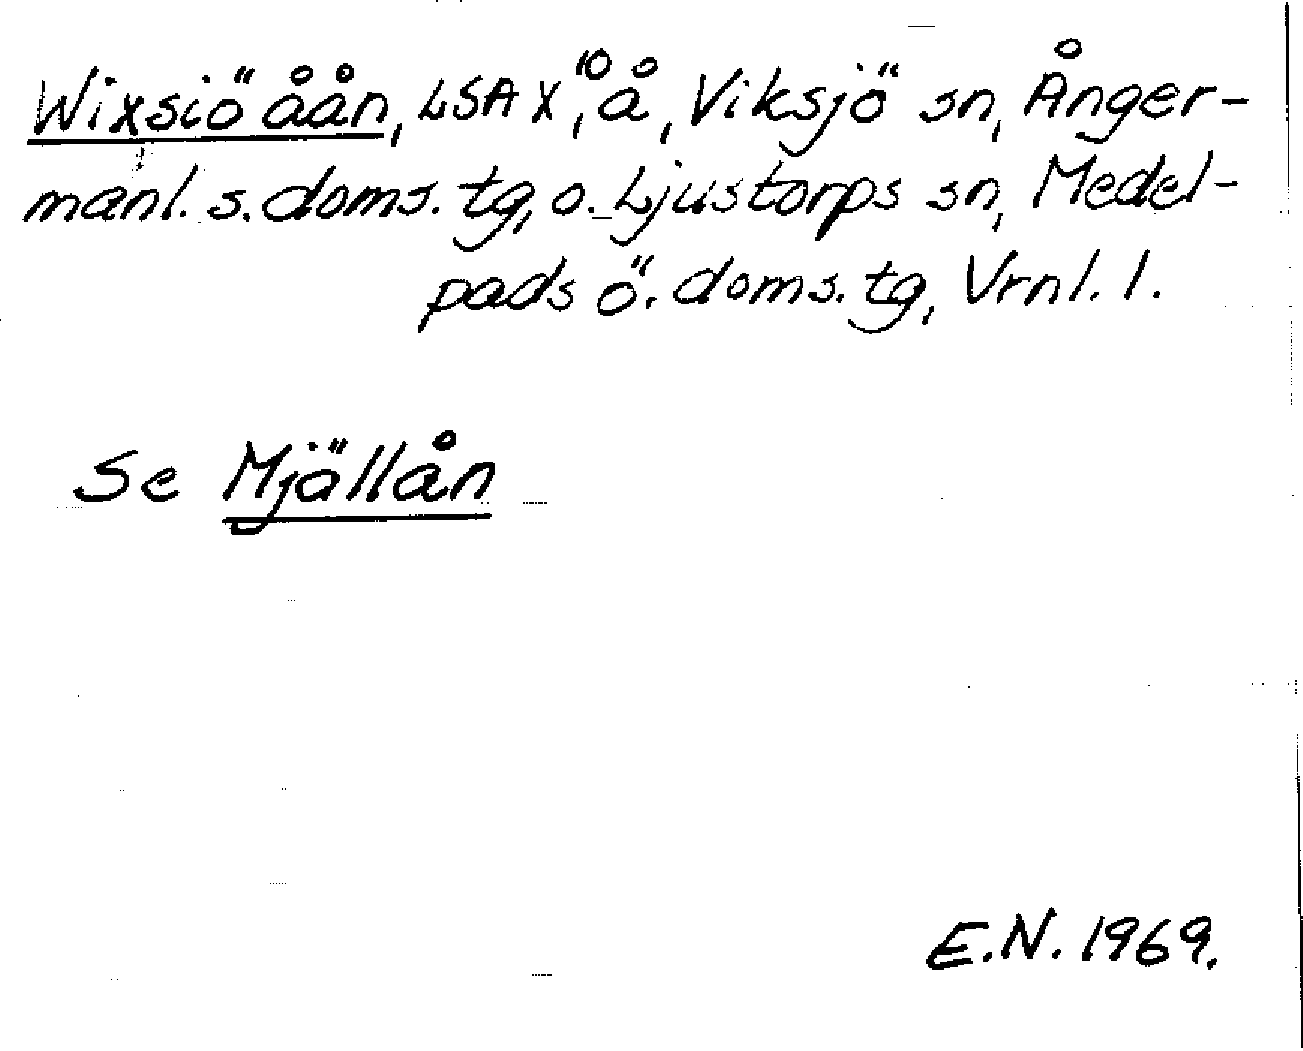 Wixsiö åån, LSA X,¹⁰ å, Viksjö sn, Ånger-
manl. s. doms. tg, o. Ljustorps sn, Medel-
pads ö. doms. tg, Vrnl. l.
Se Mjällån
E.N. 1969.